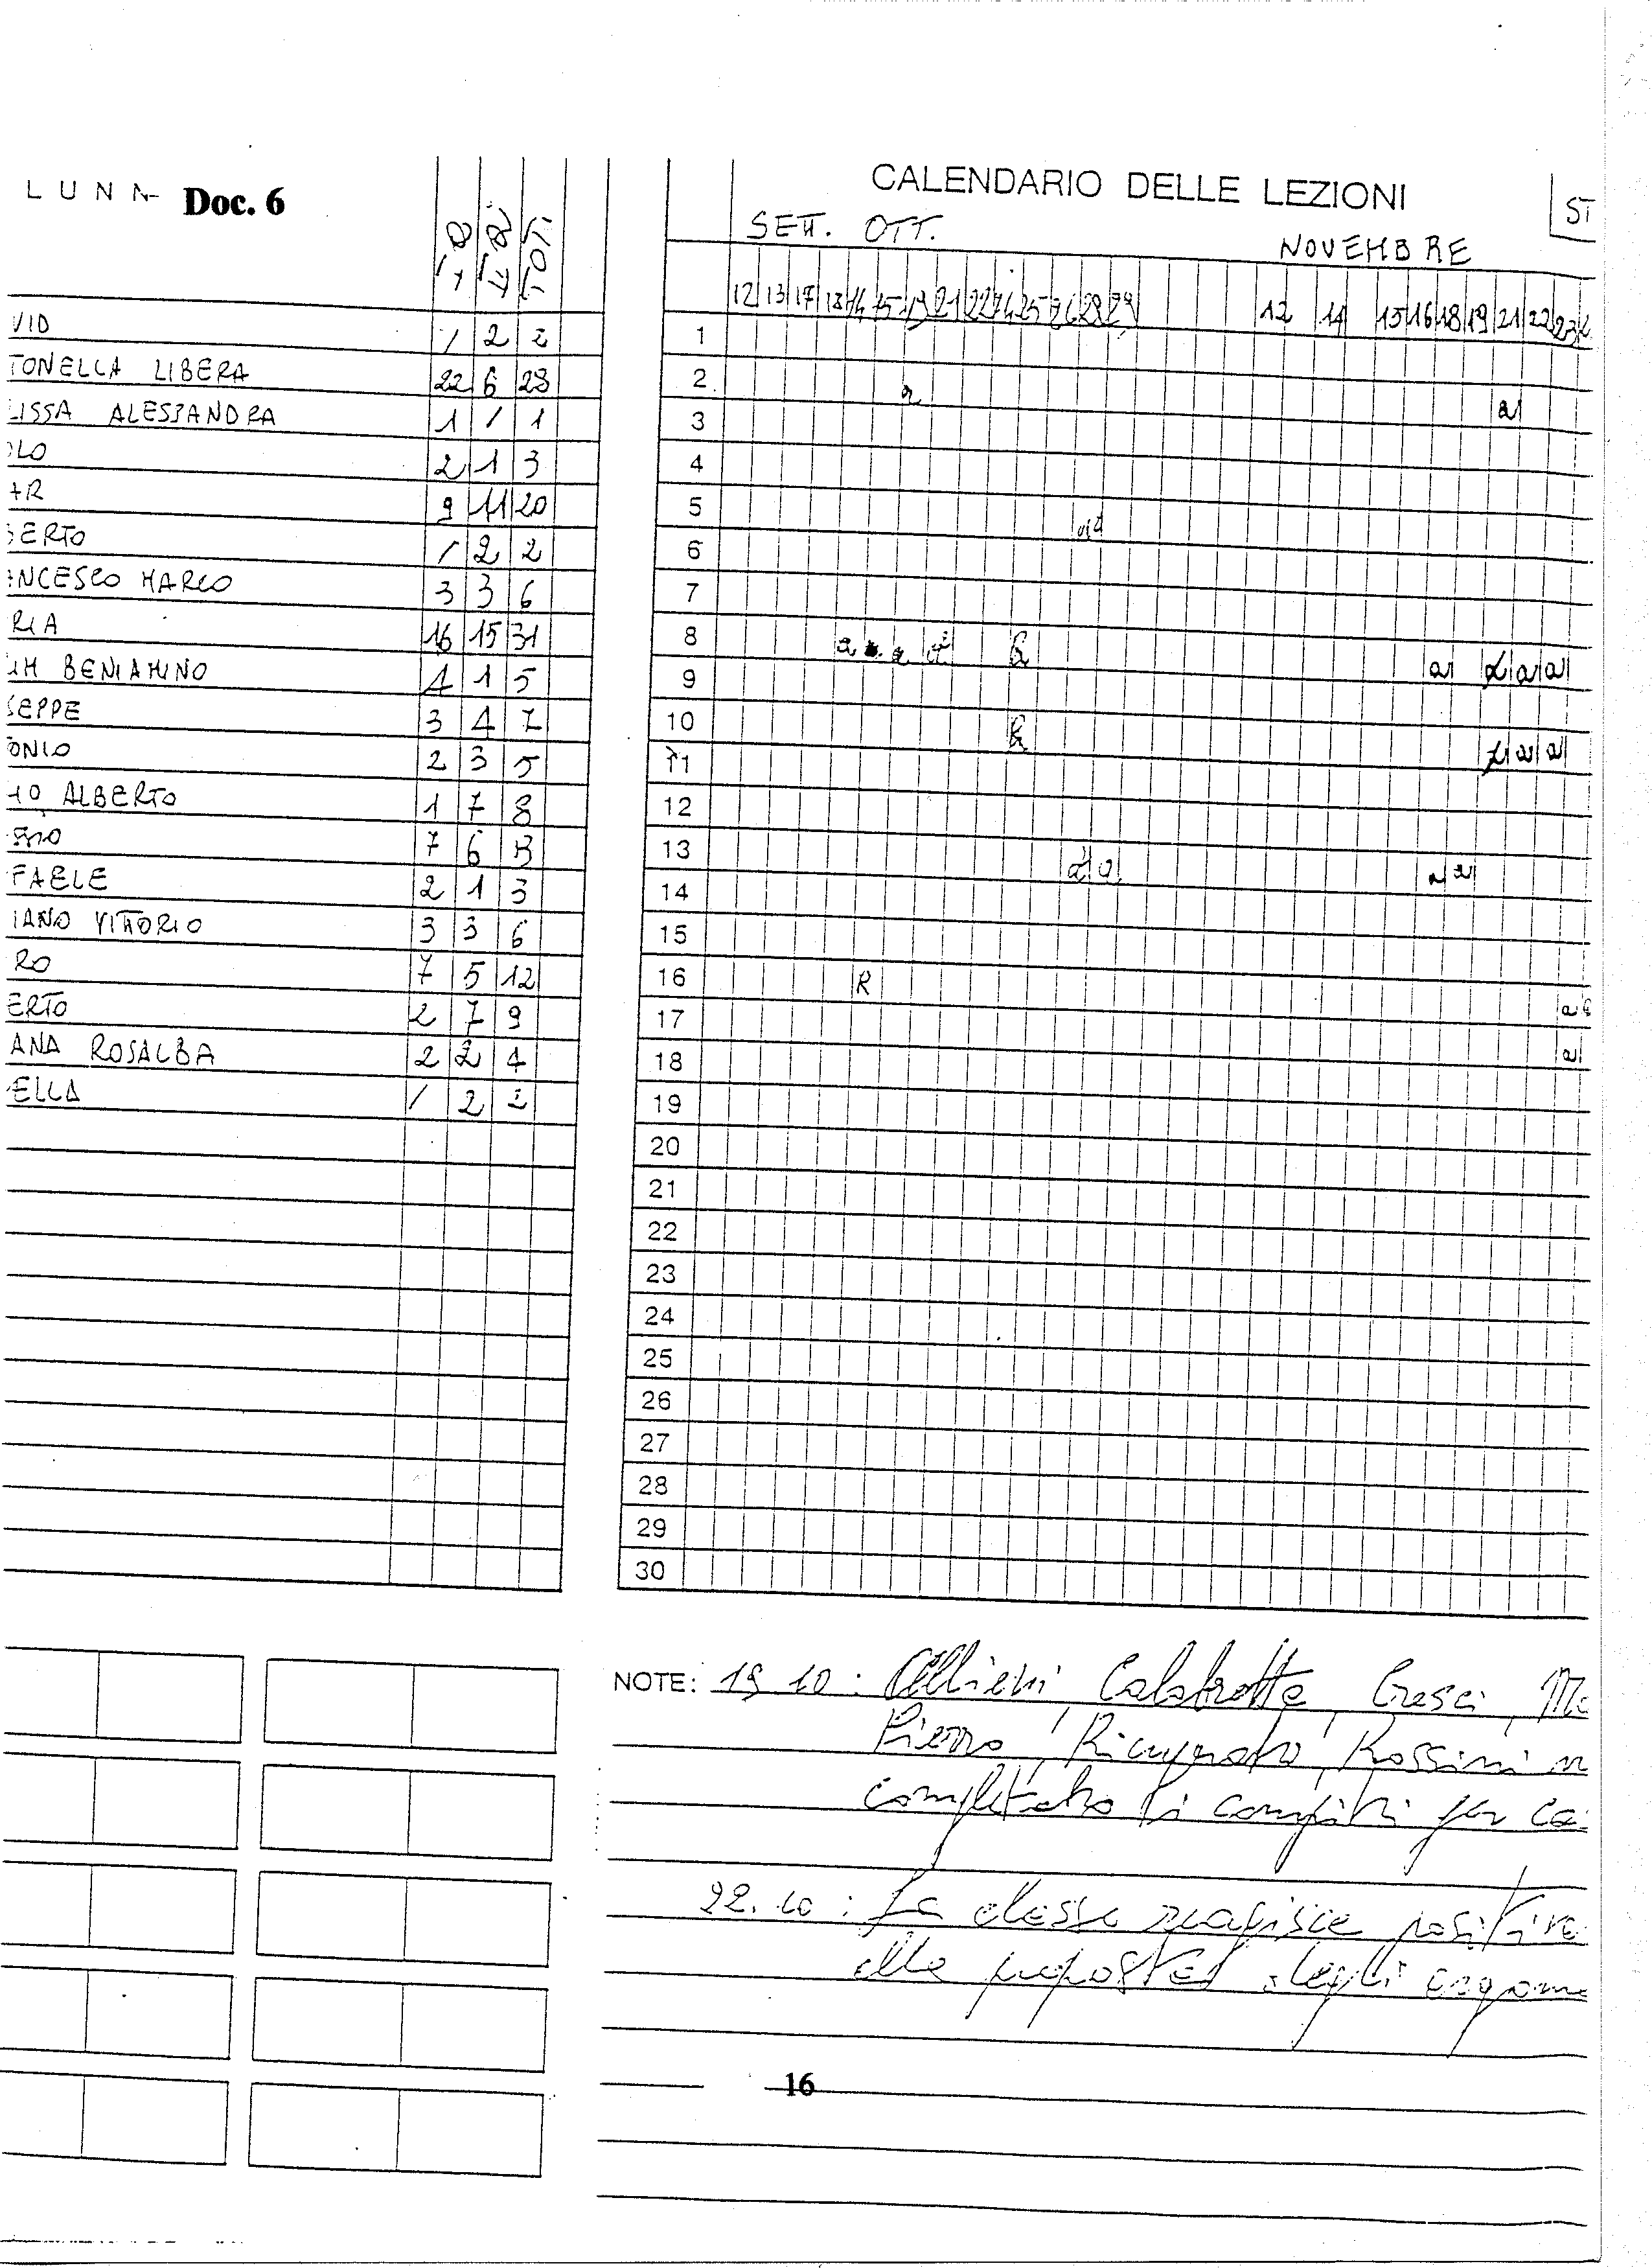 LUNN Doc. 6
I Q II Q. TOT.
CALENDARIO DELLE LEZIONI
ST
SETT. OTT. NOVEMBRE
12 13 17 18 14 15 19 21 22 24 25 26 28 29 12 14 15 16 18 19 21 22 23
VID / 2 2
TONELLA LIBERA 22 6 28
LISSA ALESSANDRA 1 / 1
OLO 2 1 3
9 11 20
BERTO / 2 2
ANCESCO MARCO 3 3 6
RIA 16 15 31
BENIAMINO 4 1 5
SEPPE 3 4 7
ONIO 2 3 5
ALBERTO 1 7 8
7 6 13
FAELE 2 1 3
IANO VITTORIO 3 3 6
RO 7 5 12
ERTO 2 7 9
ANA ROSALBA 2 2 4
ELLA / 2 2
1
2 a a
3
4
5
6
7
8 a a a R a a a
9
10 R a a
11
12
13 a a a a
14
15
16 R
17 a
18 a
19
20
21
22
23
24
25
26
27
28
29
30
NOTE: 19 10: Allievi Calabrotta, Cresci, M
Pierro, Ricuperato, Rossini n
completato i compiti per ca
22.10: La classe reagisce positiva
alle proposte degli argome
16